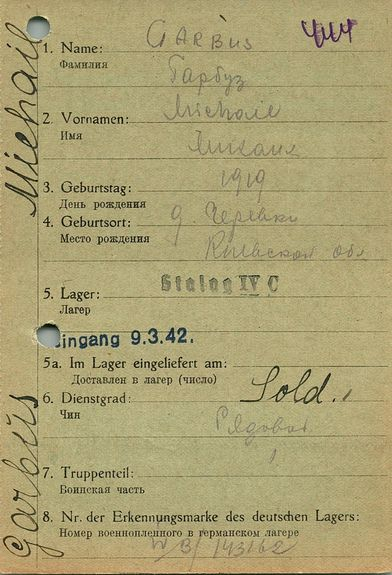 Garbus Michail
444
1. Name: GARBUS
Фамилия Гарбуз
2. Vornamen: Michail
Имя Михаил
3. Geburtstag: 1919
День рождения
4. Geburtsort: д. Черевки
Место рождения Киевской обл
5. Lager: Stalag IV C
Лагер
Eingang 9.3.42.
5a. Im Lager eingeliefert am:
Доставлен в лагер (число)
6. Dienstgrad: Sold.
Чин Рядовой
7. Truppenteil:
Воинская часть
8. Nr. der Erkennungsmarke des deutschen Lagers:
Номер военнопленного в германском лагере
IV B/143162